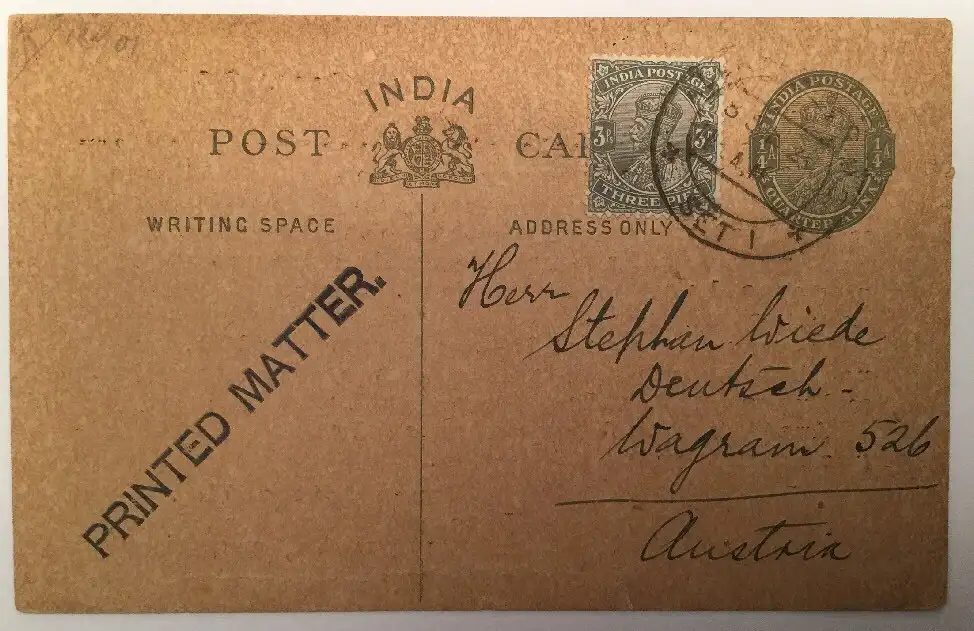 INDIA
POST CAR
WRITING SPACE
ADDRESS ONLY
INDIA POSTAGE
3P 3P
THREE PIES
INDIA POSTAGE
1/4 A 1/4 A
QUARTER ANNA
PRINTED MATTER.
Herr
Stephan Wiede
Deutsch-
Wagram 526
Austria